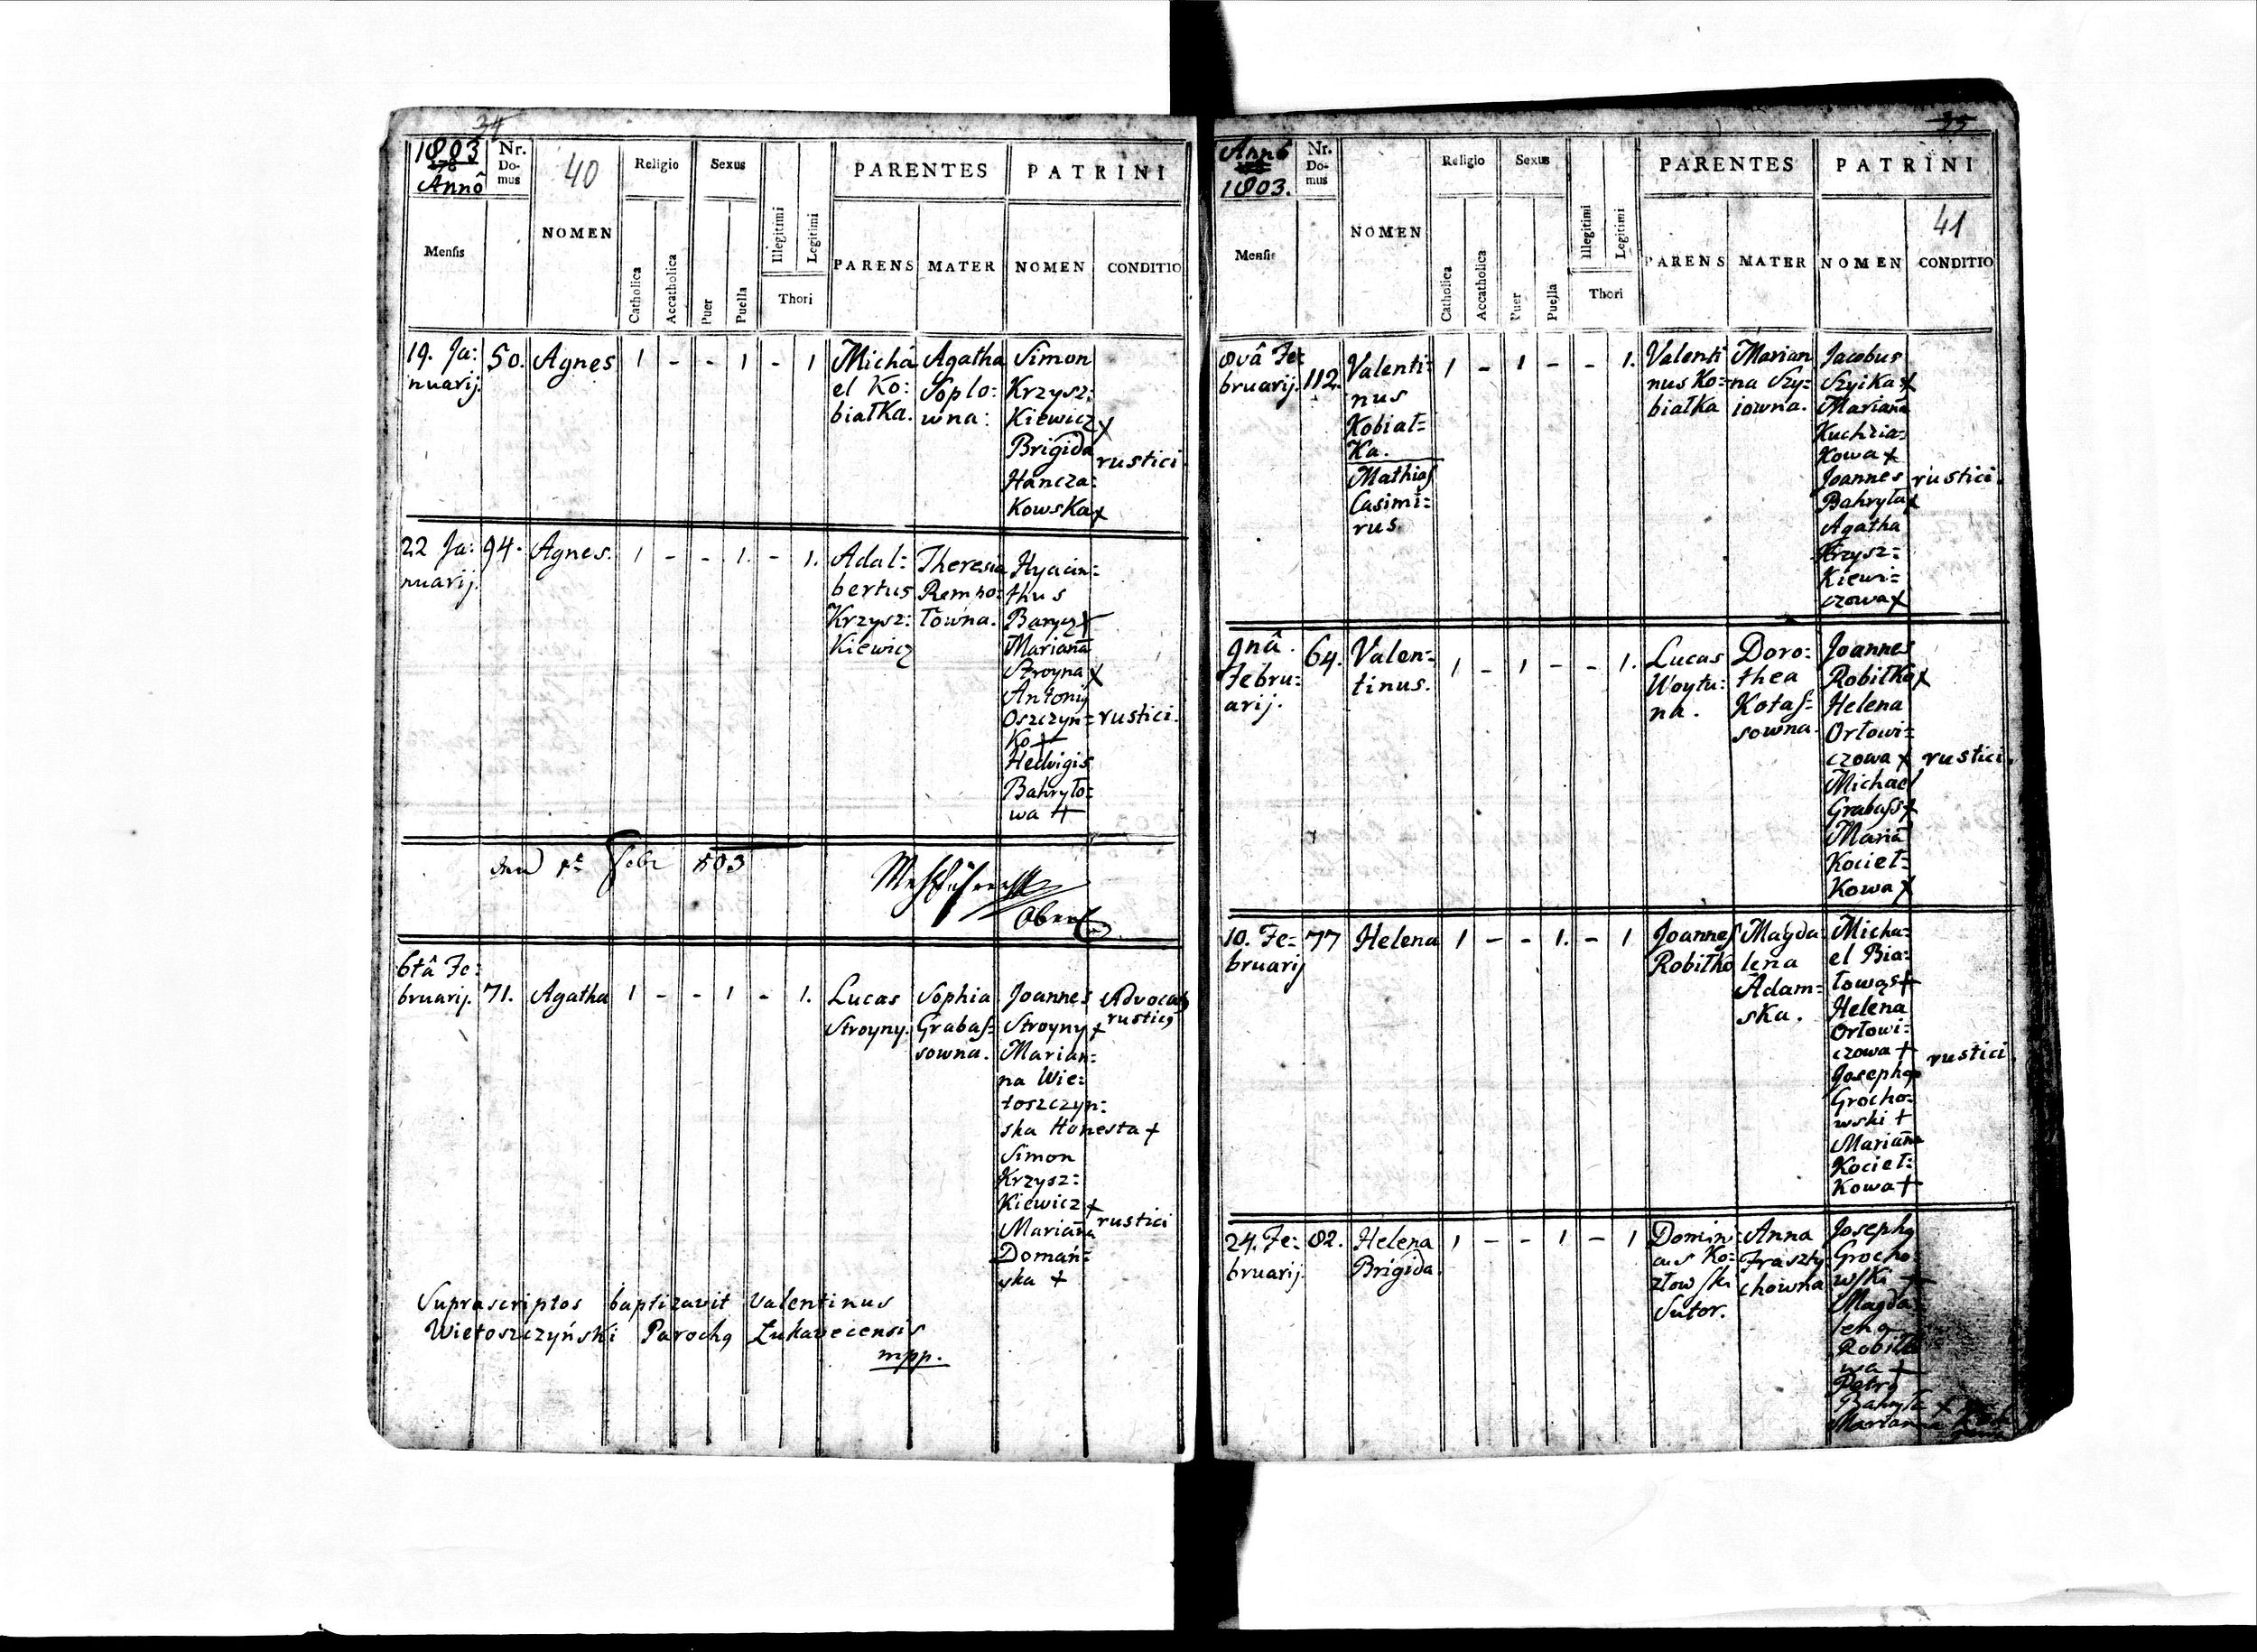 34
1803
Annô
Nr. Domus
40
NOMEN
Religio
Sexus
Illegitimi
Legitimi
Thori
PARENTES
PATRINI
Mensis
Catholica
Accatholica
Puer
Puella
PARENS
MATER
NOMEN
CONDITIO
19. Ja:
nuarij.
50.
Agnes
1 - - 1 - 1
Michâ
el Ko:
białka.
Agatha
Soplo:
wna:
Simon
Krzysz:
Kiewicz x
Brigida
Hancza:
Kowska x
rustici
22 Ja:
nuarij.
94.
Agnes.
1 - - 1. - 1.
Adal:
bertus
Krzysz:
Kiewicz
Theresia
Rembo:
łowna.
Hyacin:
thus
Barycz x
Mariana
Stroyna x
Antonij
Oszczyn:
Ko +
Hedvigis
Bahryło:
wa +
rustici.
Febr 803
6tâ Fe:
bruarij.
71.
Agatha
1 - - 1 - 1.
Lucas
Stroyny.
Sophia
Grabaſ:
sowna.
Joannes
Stroyny +
Marian:
na Wie:
łoszczyn:
ska Honesta +
Simon
Krzysz:
Kiewicz +
Mariana
Domań:
ska +
Advocatꝰ
rusticꝰ
rustici
Suprascriptos baptizavit Valentinus
Wiełoszczyński Parochꝰ Łukavecensis
mpp.
35
Annô
1803.
Nr. Domus
NOMEN
Religio
Sexus
Illegitimi
Legitimi
Thori
PARENTES
PATRINI
41
Mensis
Catholica
Accatholica
Puer
Puella
PARENS
MATER
NOMEN
CONDITIO
8vâ Fe:
bruarij.
112.
Valenti:
nus
Kobiał:
Ka.
Mathiaſ
Casimi:
rus.
1 - 1 - - 1.
Valenti
nus Ko:
białka
Marian
na Szy:
iowna.
Jacobus
Szyika x
Mariana
Kuchzia:
Kowa x
Joannes
Bahryła x
Agatha
Krzysz:
Kiewi:
czowa x
rustici.
9nâ.
Febru:
arij.
64.
Valen:
tinus.
1 - 1 - - 1.
Lucas
Woytu:
na.
Doro:
thea
Kotaſ:
sowna.
Joannes
Robiłko x
Helena
Orłowi:
czowa x
Michael
Grabaſs x
Maria
Kocieł:
Kowa x
rustici.
10. Fe:
bruarij
77
Helena
1 - - 1. - 1
Joanneſ
Robiłko
Magda
lena
Adam:
ska.
Micha:
el Bia:
towąs +
Helena
Orłowi:
czowa +
Josephꝰ
Grocho:
wski +
Mariana
Kocieł:
Kowa +
rustici
24. Fe:
bruarij.
82.
Helena
Brigida.
1 - - 1 - 1
Domini
cus Ko:
złowſki
Sutor.
Anna
Fraszty
chowna
Josephꝰ
Grocho:
wſki +
Magda
lena
Robiłko
wa +
Petrꝰ
Bahryła x
Marianna